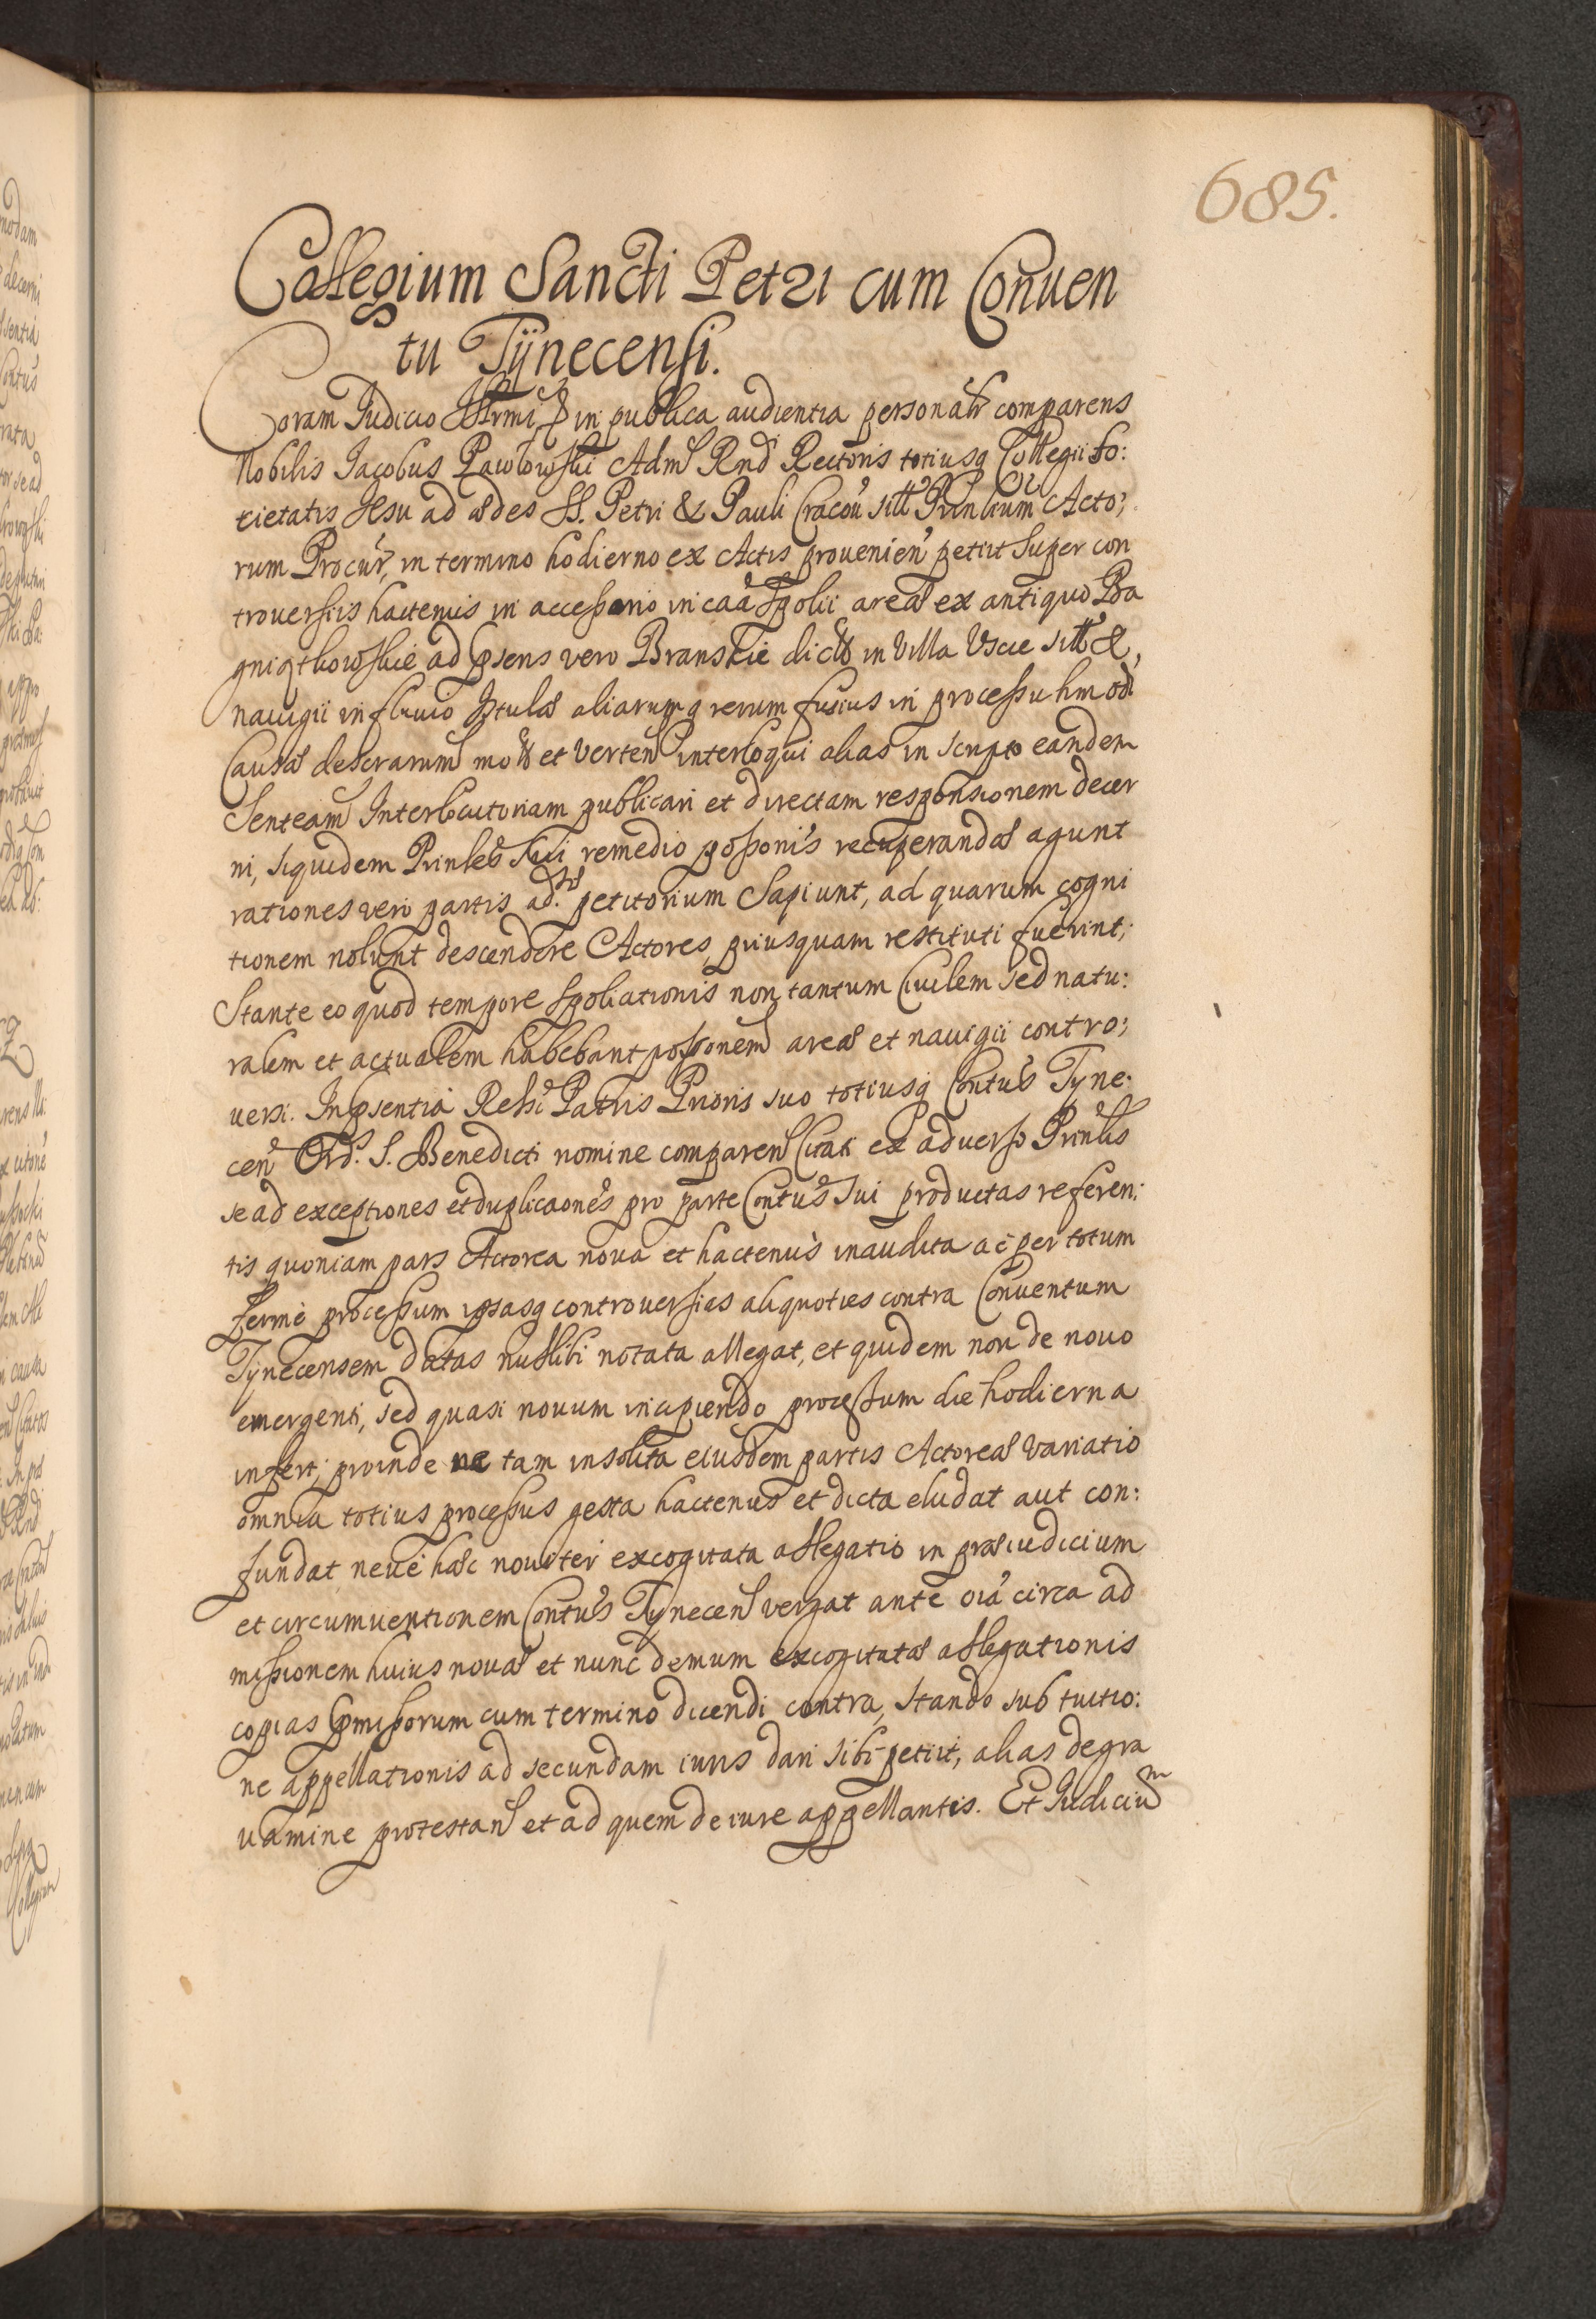 685.
Collegium Sancti Petri cum Conuen
tu Tÿnecensi.
Coram Judicio Illrmi &c in publica audientia personalr comparens
Nobilis Jacobus Pawlowski Adm Rnd Rectoris totiusq Collegii So:
cietatis Jesu ad ædes SS. Petri & Pauli Cracou sitt Prinlium Acto:
rum Procur, in termino hodierno ex Actis prouenien petiit super con
trouersiis hactenus in accessorio in caa Spolii areæ ex antiquo Ba
gni ad psens vero Branskie dictæ in Villa Vscie sitt &,
nauigii in fluuio Istulæ aliarumq rerum fusius in processu hmodi
Causæ descrarum motæ et verten interloqui alias in scripto eandem
Senteam Interlocutoriam publicari et directam responsionem decer
ni, siquidem Prinles sui remedio possonis recuperandæ agunt
rationes vero partis ad. petitorium sapiunt, ad quarum cogni
tionem nolunt descendere Actores, priusquam restituti fuerint;
Stante eo quod tempore spoliationis non tantum Ciuilem sed natu:
ralem et actualem habebant possonem areæ et nauigii contro:
uersi. In psentia Relsi Patris Prioris suo totiusq Contus Tyne:
cen Ord. S. Benedicti nomine comparen Citati ex aduerso Prinlis
se ad exceptiones et duplicaones pro parte Contus sui productas referen:
tis quoniam pars Actorea noua et hactenus inaudita ac per totum
ferme processum ipsasq controuersias aliquoties contra Conuentum
Tynecensem datas nullibi notata allegat, et quidem non de nouo
emergenti, sed quasi nouum incipiendo processum die hodierna
infert; proinde ne tam insolita eiusdem partis Actoreæ variatio
omnia totius processus gesta hactenus et dicta eludat aut con:
fundat neue hæc nouiter excogitata allegatio in præiudicium
et circumuentionem Contus Tynecen vergat ante oia circa ad
missionem huius nouæ et nunc demum excogitatæ allegationis
copias pmissorum cum termino dicendi contra, stando sub tuitio:
ne appellationis ad secundam iuris dari sibi petiit, alias de gra
uamine protestan et ad quem de iure appellantis. Et Judicium